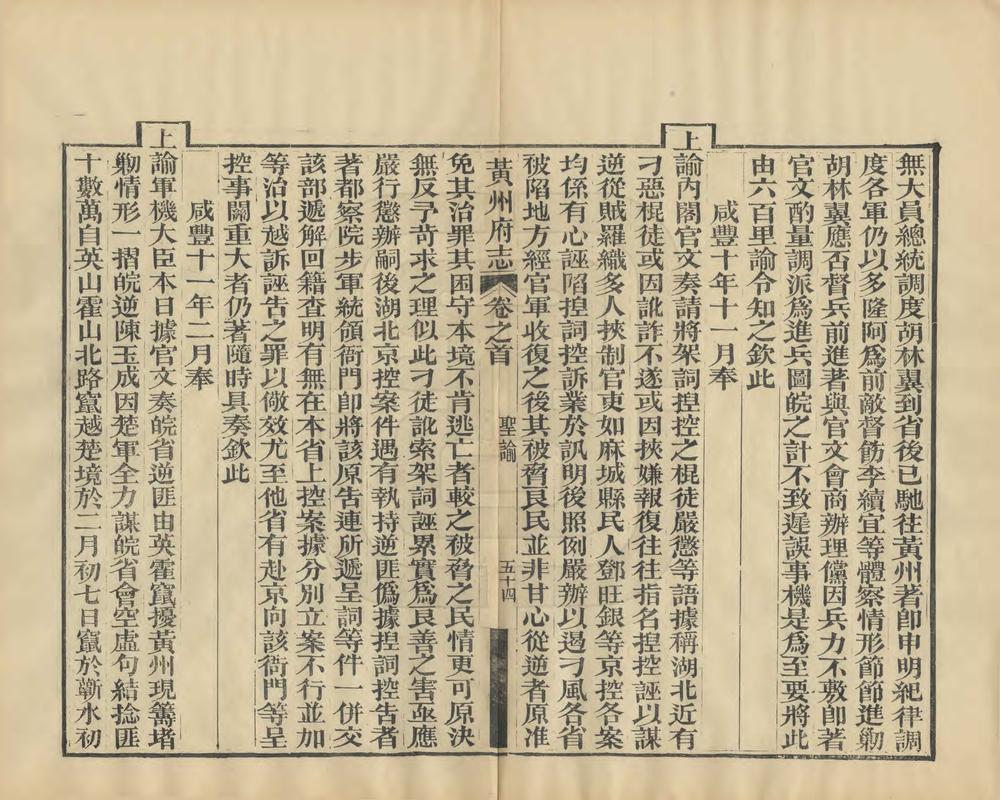 無大員總統調度胡林翼到省後已馳往黃州著卽申明紀律調
度各軍仍以多隆阿爲前敵督飭李續宜等體察情形節節進勦
胡林翼應否督兵前進著與官文會商辦理儻因兵力不敷卽著
官文酌量調派爲進兵圖皖之計不致遲誤事機是爲至要將此
由六百里諭令知之欽此
咸豐十年十一月奉
上諭內閣官文奏請將架詞揑控之棍徒嚴懲等語據稱湖北近有
刁惡棍徒或因訛詐不遂或因挾嫌報復往往指名揑控誣以謀
逆從賊羅織多人挾制官吏如麻城縣民人鄧旺銀等京控各案
均係有心誣陷揑詞控訴業於訊明後照例嚴辦以遏刁風各省
被陷地方經官軍收復之後其被脅良民並非甘心從逆者原准
黃州府志 卷之首 聖諭 五十四
免其治罪其困守本境不肯逃亡者較之被脅之民情更可原決
無反予苛求之理似此刁徒訛索架詞誣累實爲良善之害亟應
嚴行懲辦嗣後湖北京控案件遇有執持逆匪僞據揑詞控告者
著都察院步軍統領衙門卽將該原告連所遞呈詞等件一併交
該部遞解回籍查明有無在本省上控案據分別立案不行並加
等治以越訴誣告之罪以儆效尤至他省有赴京向該衙門等呈
控事關重大者仍著隨時具奏欽此
咸豐十一年二月奉
上諭軍機大臣本日據官文奏皖省逆匪由英霍竄擾黃州現籌堵
勦情形一摺皖逆陳玉成因楚軍全力謀皖省會空虛句結捻匪
十數萬自英山霍山北路竄越楚境於二月初七日竄於蘄水初